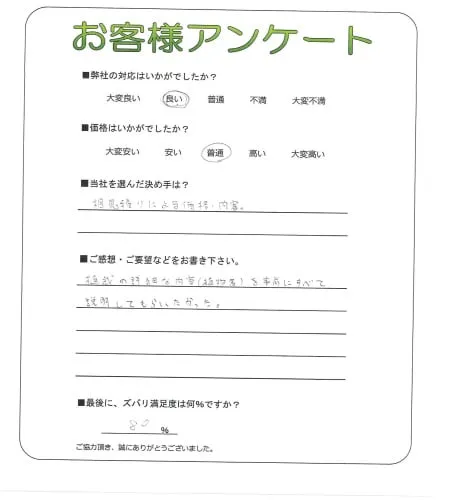 お客様アンケート
■弊社の対応はいかがでしたか？
大変良い 良い 普通 不満 大変不満
■価格はいかがでしたか？
大変安い 安い 普通 高い 大変高い
■当社を選んだ決め手は？
相見積りによる価格・内容。
■ご感想・ご要望などをお書き下さい。
植栽の詳細な内容(植物名)を事前にすべて
説明してもらいたかった。
■最後に、ズバリ満足度は何％ですか？
80 ％
ご協力頂き、誠にありがとうございました。